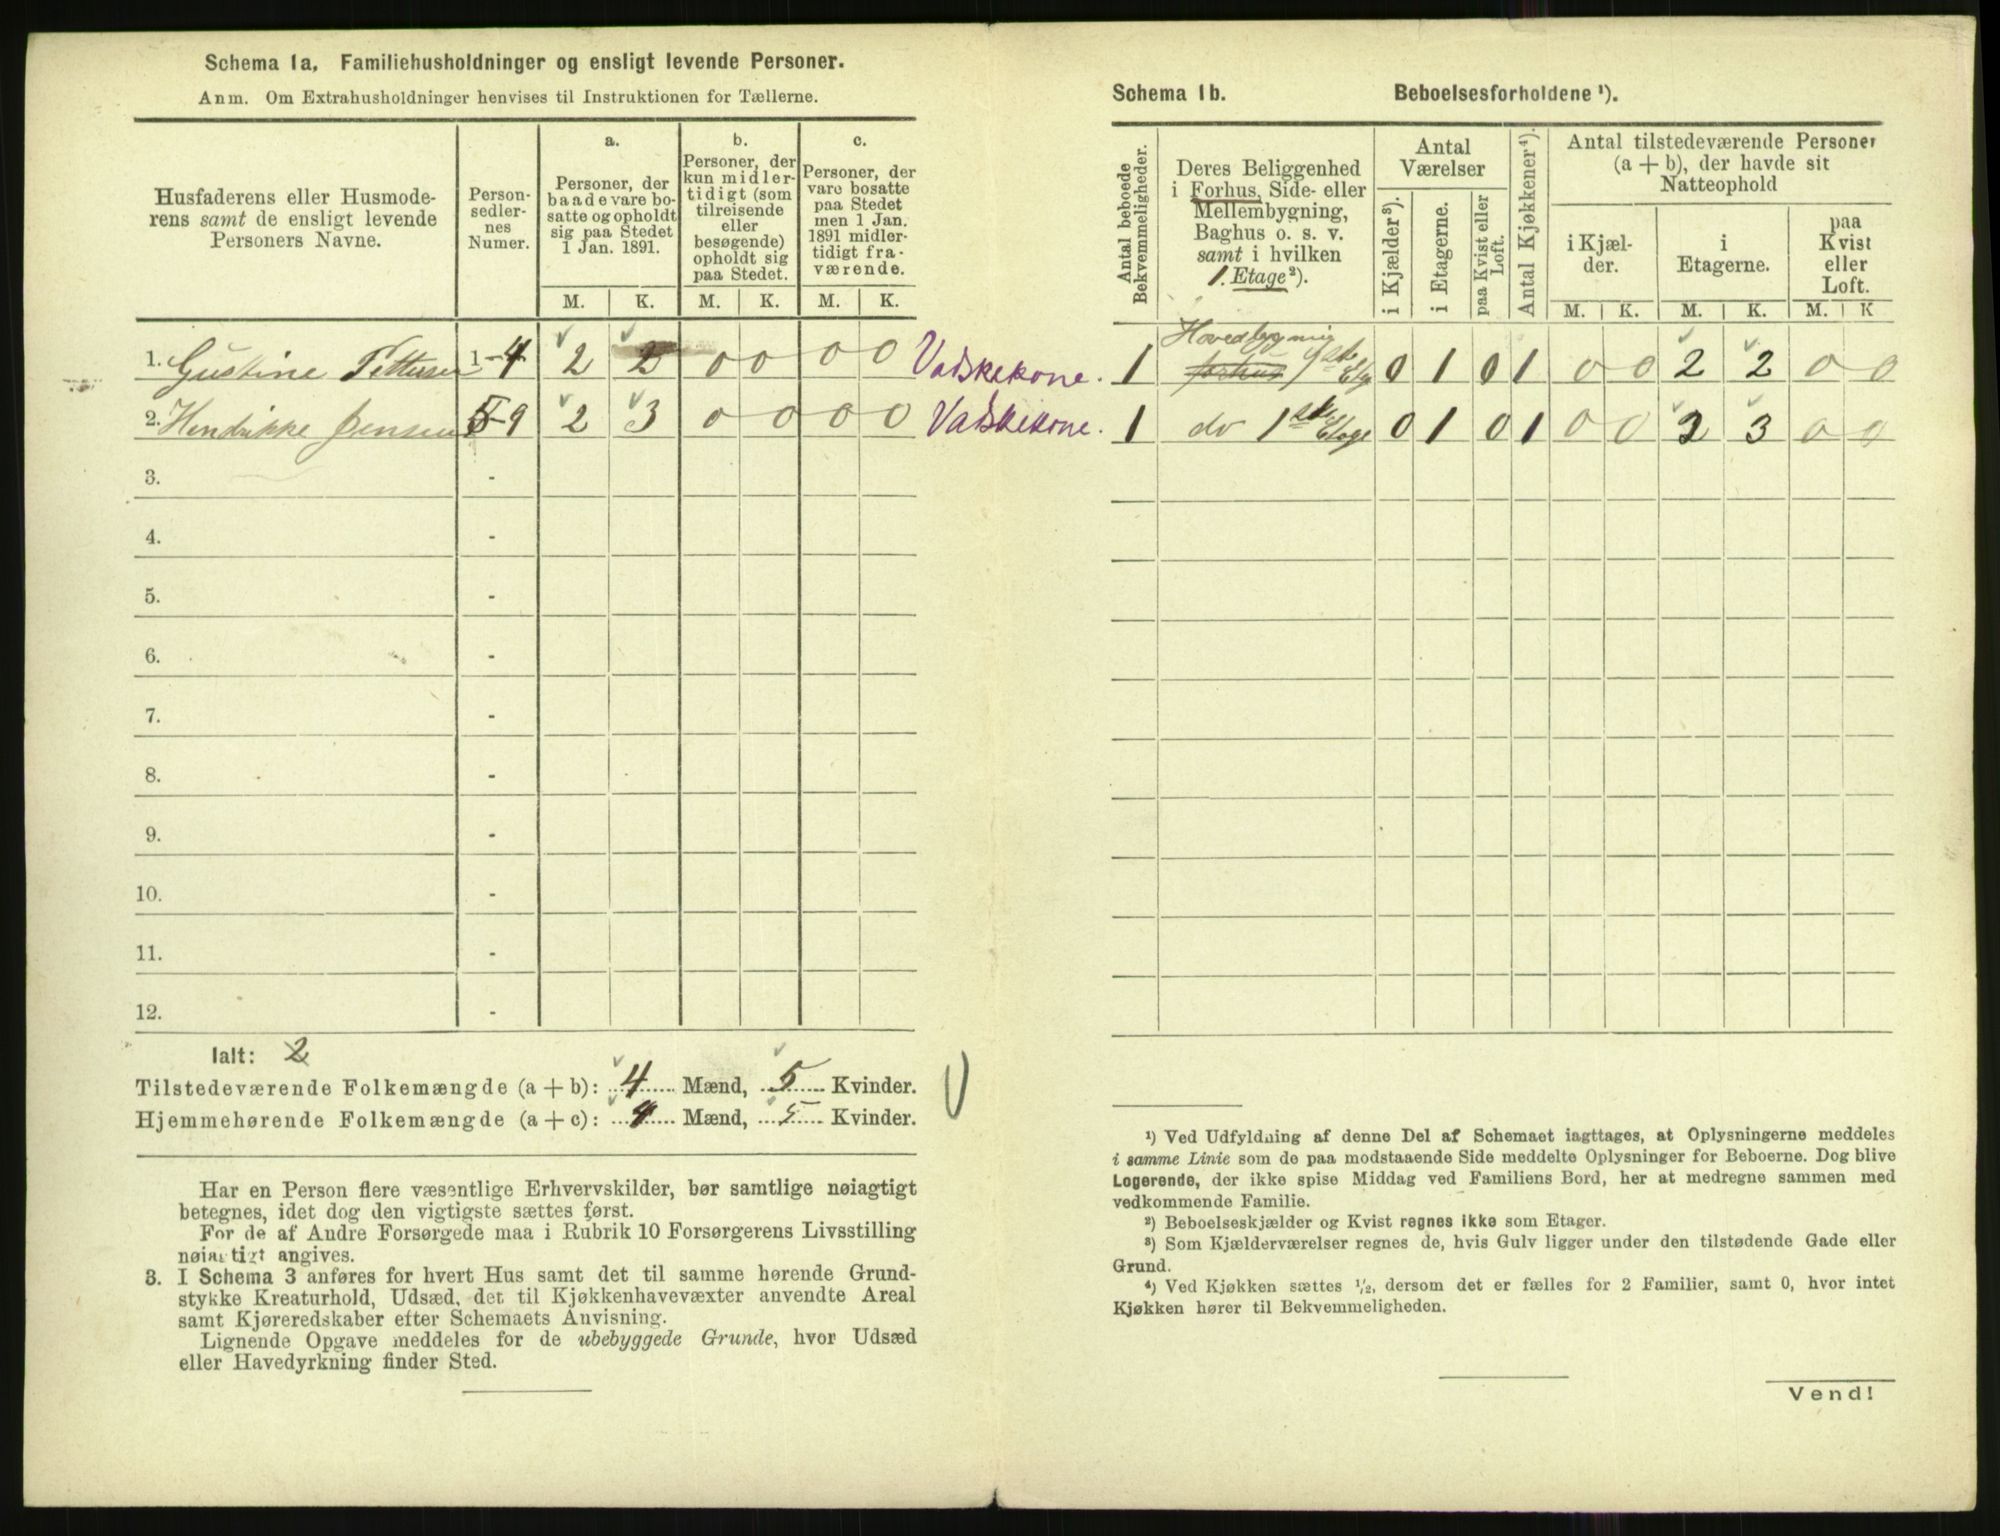 Schema 1a, Familiehusholdninger og ensligt levende Personer.
Anm. Om Extrahusholdninger henvises til Instruktionen for Tællerne.
Husfaderens eller Husmode-
rens samt de ensligt levende
Personers Navne.
Person-
sedler-
nes
Numer.
a.
Personer, der
baade vare bo-
satte og opholdt
sig paa Stedet
1 Jan. 1891.
b.
Personer, der
kun midler-
tidigt (som
tilreisende
eller
besøgende)
opholdt sig
paa Stedet.
c.
Personer, der
vare bosatte
paa Stedet
men 1 Jan.
1891 midler-
tidigt fra-
værende.
M. K. M. K. M. K.
1. Gustine Pettersen 1-4 2 2 0 0 0 0 Vaskekone.
2. Hendrikke Jensen 5-9 2 3 0 0 0 0 Vaskekone.
3. -
4. -
5. -
6. -
7. -
8. -
9. -
10. -
11. -
12. -
Ialt: 2
Tilstedeværende Folkemængde (a + b): 4 Mænd, 5 Kvinder.
Hjemmehørende Folkemængde (a + c): 4 Mænd, 5 Kvinder.
Har en Person flere væsentlige Erhvervskilder, bør samtlige nøiagtigt
betegnes, idet dog den vigtigste sættes først.
For de af Andre Forsørgede maa i Rubrik 10 Forsørgerens Livsstilling
nøiagtigt angives.
3. I Schema 3 anføres for hvert Hus samt det til samme hørende Grund-
stykke Kreaturhold, Udsæd, det til Kjøkkenhavevæxter anvendte Areal
samt Kjøreredskaber efter Schemaets Anvisning.
Lignende Opgave meddeles for de ubebyggede Grunde, hvor Udsæd
eller Havedyrkning finder Sted.
Schema 1b. Beboelsesforholdene ¹).
Antal beboede
Bekvemmeligheder.
Deres Beliggenhed
i Forhus, Side- eller
Mellembygning,
Baghus o. s. v.
samt i hvilken
1. Etage²).
Antal
Værelser
i Kjælder³).
i Etagerne.
paa Kvist eller
Loft.
Antal Kjøkkener⁴).
Antal tilstedeværende Personer
(a + b), der havde sit
Natteophold
i Kjæl-
der.
i
Etagerne.
paa
Kvist
eller
Loft.
M. K. M. K. M. K
1 Hovedbygning forhus 1ste Etg 0 1 0 1 0 0 2 2 0 0
1 do 1ste Etage 0 1 0 1 0 0 2 3 0 0
¹) Ved Udfyldning af denne Del af Schemaet iagttages, at Oplysningerne meddeles
i samme Linie som de paa modstaaende Side meddelte Oplysninger for Beboerne. Dog blive
Logerende, der ikke spise Middag ved Familiens Bord, her at medregne sammen med
vedkommende Familie.
²) Beboelseskjælder og Kvist regnes ikke som Etager.
³) Som Kjælderværelser regnes de, hvis Gulv ligger under den tilstødende Gade eller
Grund.
⁴) Ved Kjøkken sættes ½, dersom det er fælles for 2 Familier, samt 0, hvor intet
Kjøkken hører til Bekvemmeligheden.
Vend!